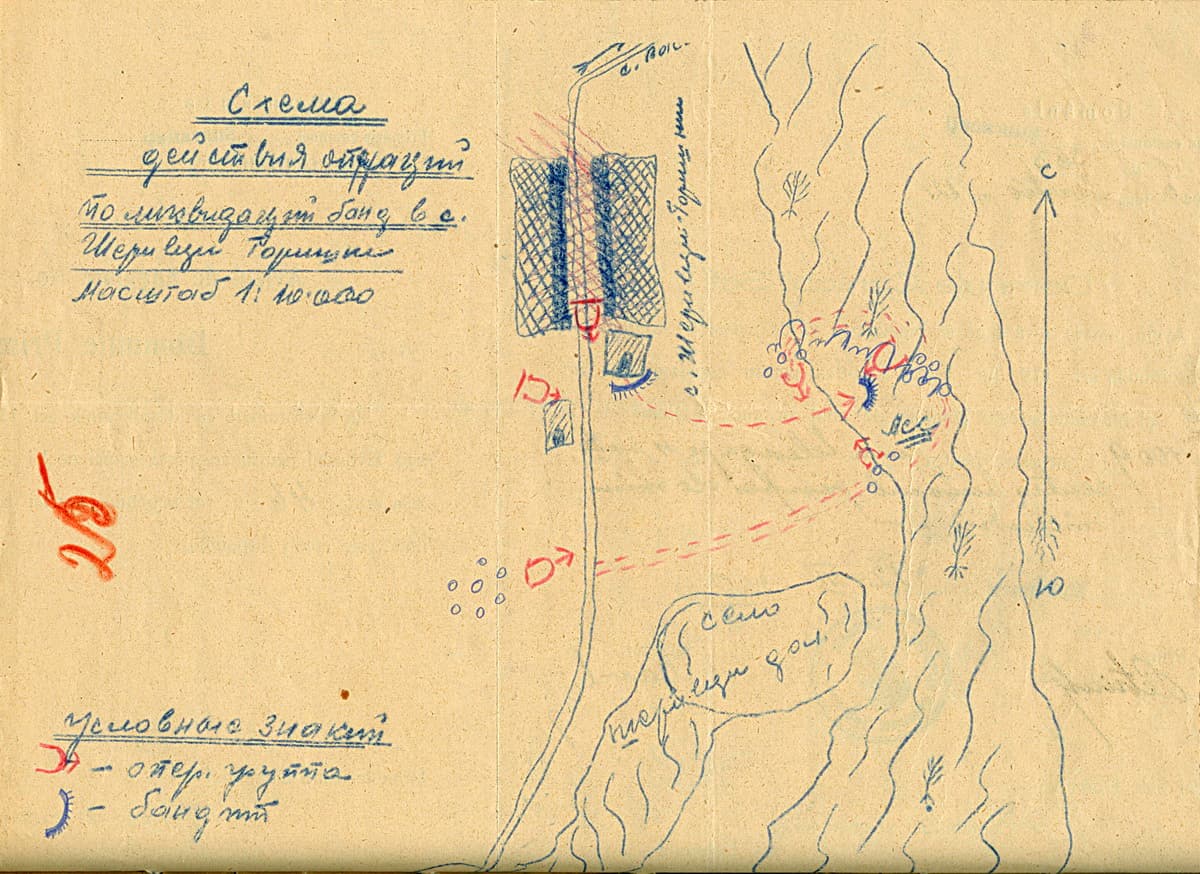 Схема
действия операций
по ликвидаций банд в с.
Шеривци Горишни
Масштаб 1: 10.000
с. Вак.
с. Шеривци-Горишни
С
лес
Ю
село
Шеривци дол.
25
Условные знаки
– опер. группа
– бандит